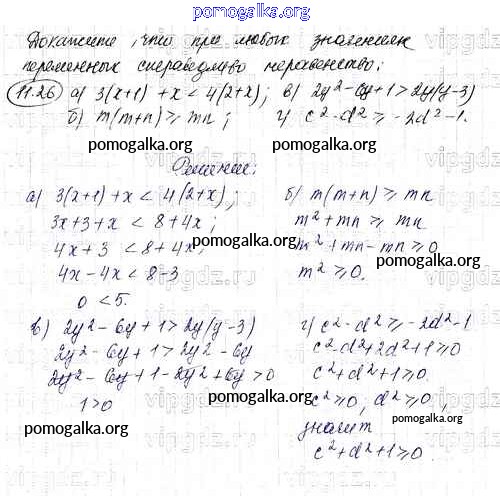 pomogalka.org
Докажите, что при любых значениях
переменных справедливо неравенство:
11.26 а) 3(x+1) + x < 4(2+x); в) 2y² - 6y + 1 > 2y(y-3)
б) m(m+n) ≥ mn; г) c² - d² ≥ -2d² - 1.
pomogalka.org
pomogalka.org
Решение:
а) 3(x+1) + x < 4(2+x);
3x+3+x < 8+4x;
4x+3 < 8+4x;
4x-4x < 8-3
0 < 5.
б) m(m+n) ≥ mn
m² + mn ≥ mn
m² + mn - mn ≥ 0
m² ≥ 0.
pomogalka.org
pomogalka.org
в) 2y² - 6y + 1 > 2y(y-3)
2y² - 6y + 1 > 2y² - 6y
2y² - 6y + 1 - 2y² + 6y > 0
1 > 0
г) c² - d² ≥ -2d² - 1
c² - d² + 2d² + 1 ≥ 0
c² + d² + 1 ≥ 0.
c² ≥ 0, d² ≥ 0,
значит
c² + d² + 1 ≥ 0.
pomogalka.org
pomogalka.org
pomogalka.org
vipgdz.ru